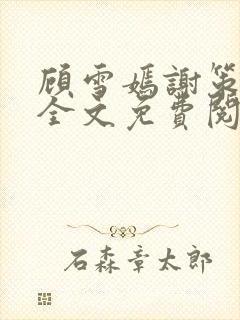 顾雪嫣謝策
全文免費閱
石森章太郎